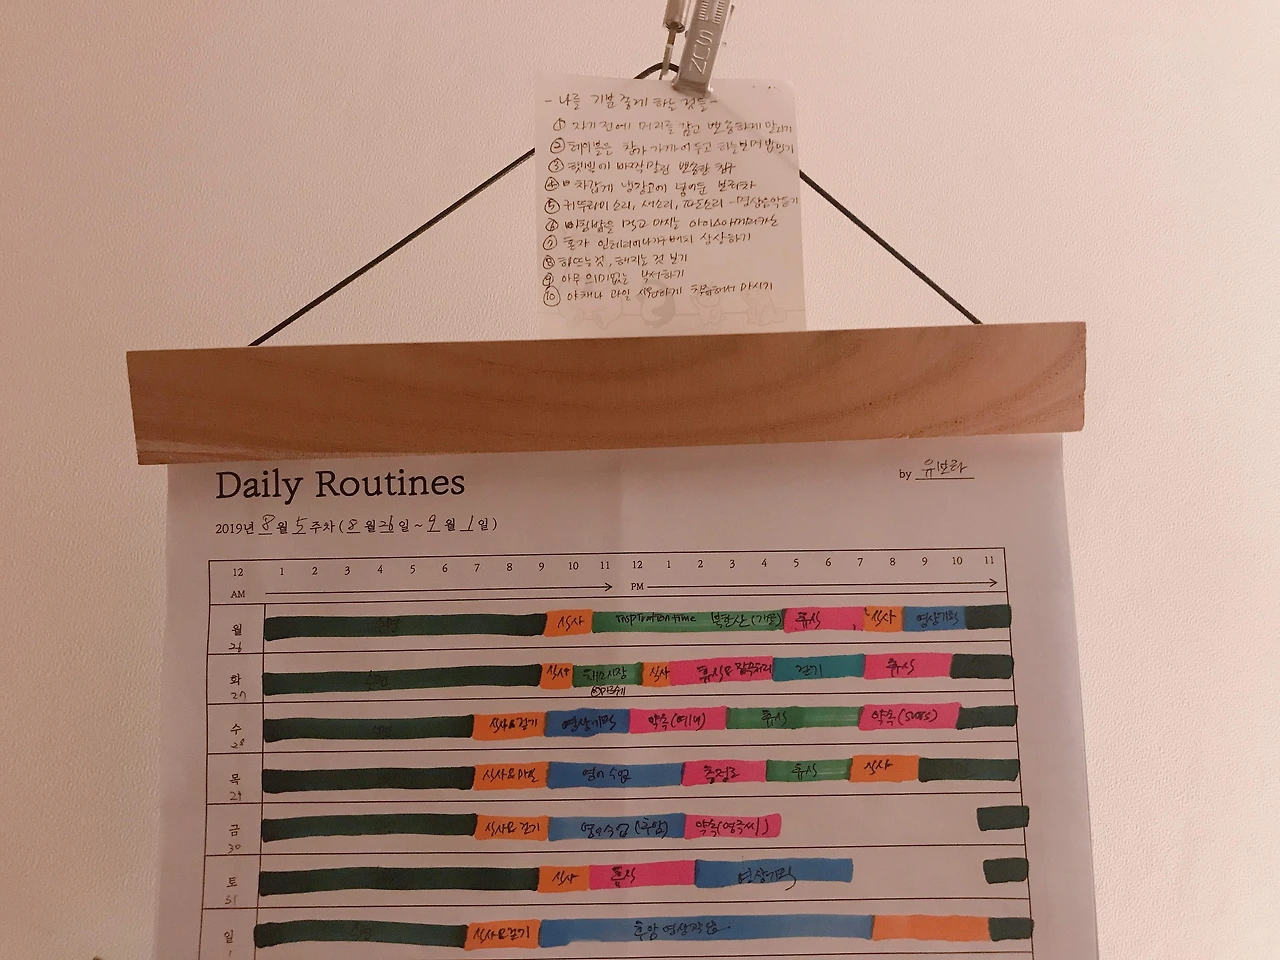 SUNZ
- 나를 기분 좋게 하는 것들 -
① 자기 전에 머리를 감고 뽀송하게 말리기
② 테이블은 창가 가까이 두고 하늘 보며 밥먹기
③ 햇빛에 바짝 말린 뽀송한 침구
④ 차갑게 냉장고에 넣어둔 보리차
⑤ 귀뚜라미 소리, 새소리, 파도소리 - 명상음악듣기
⑥ 비빔밥을 먹고 마시는 아이스아메리카노
⑦ 혼자 인테리어나 가구배치 상상하기
⑧ 해뜨는 것, 해지는 것 보기
⑨ 아무 의미없는 낙서하기
⑩ 야채나 과일 시원하게 착즙해서 마시기
Daily Routines
by 유보라
2019년 8월 5주차 (8월 26일 ~ 9월 1일)
12 1 2 3 4 5 6 7 8 9 10 11 12 1 2 3 4 5 6 7 8 9 10 11
AM PM
월 수면 식사 Inspiration time 북한산 휴식 식사 영상기획
26
화 수면 식사 식사 휴식& 걷기 휴식
27
수 수면 식사&걷기 영상기획 약속(예나) 휴식 약속
28
목 식사& 영어수업 충정로 휴식 식사
29
금 식사&걷기 영어수업 (후암) 약속
30
토 식사 휴식 영상기획
31
일 수면 식사&걷기 후암 영상작업
1